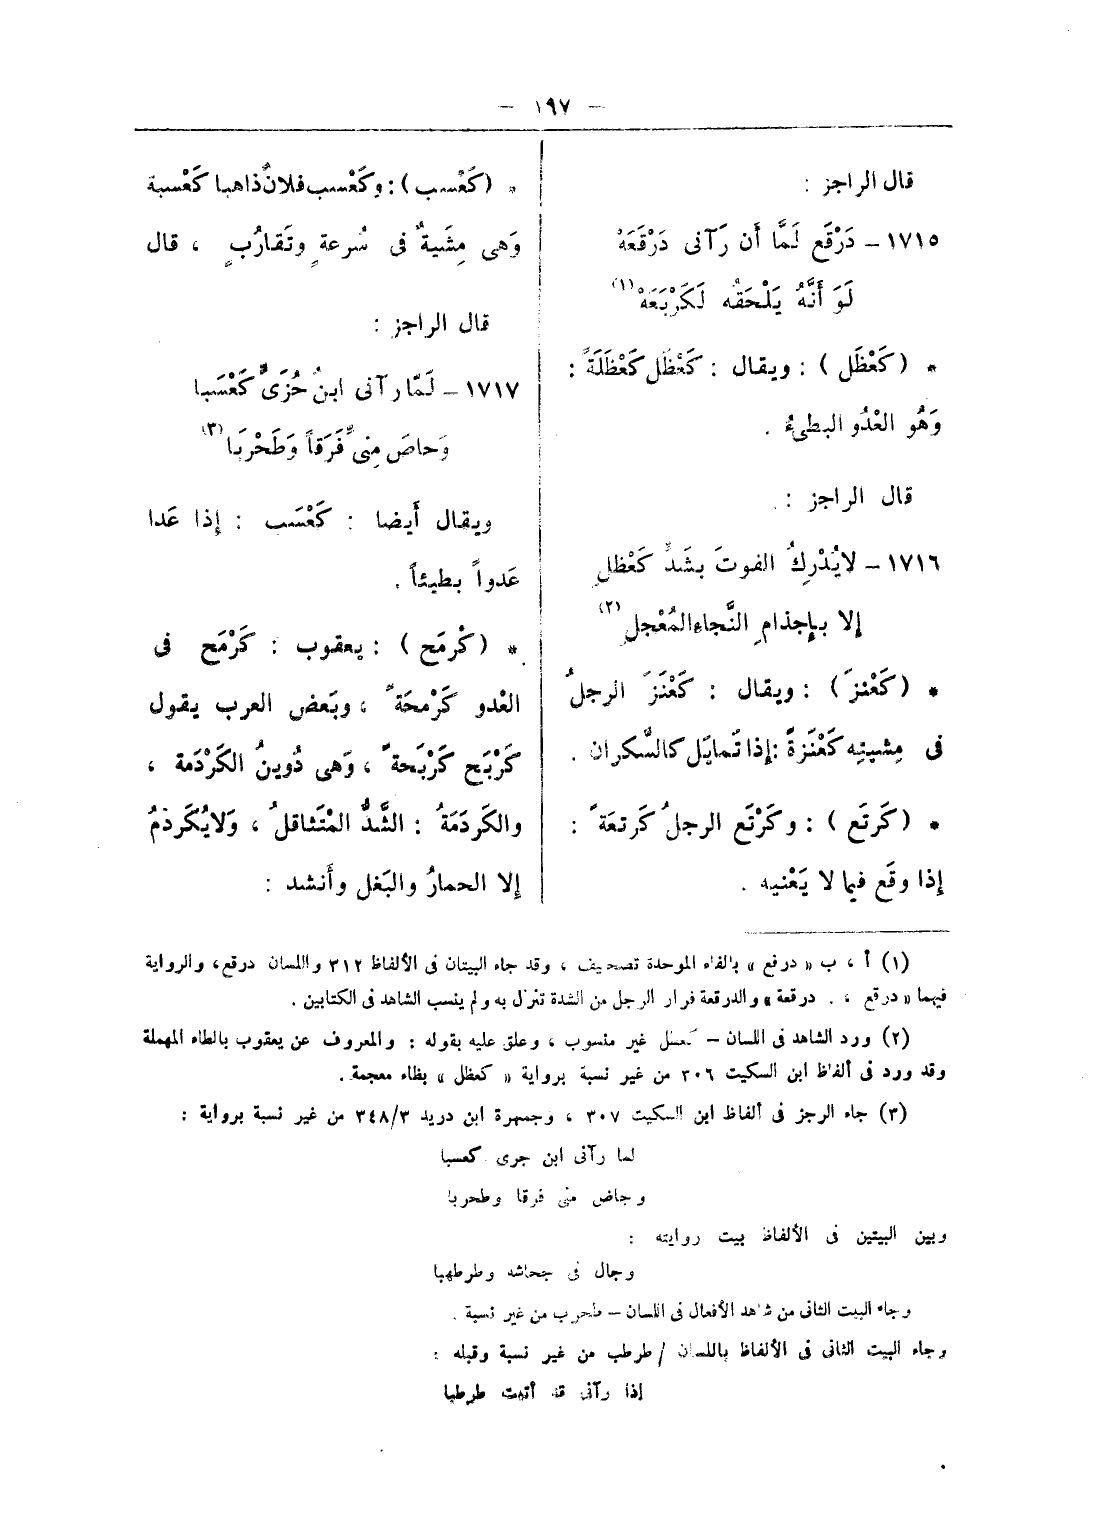 — ١٩٧ —
قال الراجز :
١٧١٥ – دَرْقَع لَمَّا أن رَآنى دَرْقَعَهْ
لَوَ أنَّهُ يَلْحَقُه لَكَرْبَعَهْ (١)
* (كَعْظَل) : ويقال : كَعْظَل كَعْظَلَةً :
وَهُو العْدُو البطىءُ .
قال الراجز :
١٧١٦ – لايُدْرِكُ الفوتَ بشَدٍّ كَعْظلِ
إلا بإجذامِ النَّجاءِالمُعْجلِ (٢)
* (كَعْنزَ) : ويقال : كَعْنَزَ الرجلُ
فى مِشيتِه كَعْنَزةً : إذا تَمايَل كالسَّكران .
* (كَرتَع) : وكَرْتَع الرجلُ كَرتعَةً :
إذا وقَع فيما لا يَعْنيه .
* (كَعْسب) : وكَعْسب فلانٌ ذاهبا كَعْسبة
وَهى مِشيةٌ فى سُرعةٍ وتَقارُبٍ ، قال
قال الراجز :
١٧١٧ – لَمّا رآنى ابنُ حُزَىٍّ كَعْسَبا
وَحاصَ مِنىِّ فَرَقاً وَطَحْرَبَا (٣)
ويقال أيضا : كَعْسَب : إذا عَدا
عَدواً بطيئاً .
* (كْرمَح) : يعقوب : كَرْمَح فى
العْدو كَرْمحَةً ، وبَعض العرب يقول
كَرْبَح كَرْبَحةً ، وَهى دُوينُ الكَرْدَمة ،
والكَردَمَةُ : الشَّدُّ المْتَثاقلُ ، وَلايُكَردْمُ
إلا الحمارُ والبَغل وأنشد :
(١) أ ، ب « درفع » بالفاء الموحدة تصحيف ، وقد جاء البيتان فى الألفاظ ٣١٢ واللسان درقع، والرواية
فيهما « درقع ، . درقعة » والدرقعة فرار الرجل من الشدة تنزل به ولم ينسب الشاهد فى الكتابين .
(٢) ورد الشاهد فى اللسان – كعطل غير منسوب ، وعلق عليه بقوله : والمعروف عن يعقوب بالطاء المهملة
وقد ورد فى ألفاظ ابن السكيت ٣٠٦ من غير نسبة برواية « كعظل » بظاء معجمة .
(٣) جاء الرجز فى ألفاظ ابن السكيت ٣٠٧ ، وجمهرة ابن دريد ٣٤٨/٣ من غير نسبة برواية :
لما رآنى ابن جرى كعسبا
وجاض منى فرقا وطحربا
وبين البيتين فى الألفاظ بيت روايته :
وجال فى جحاشه وطرطبا
وجاء البيت الثانى من شاهد الأفعال فى اللسان – طحرب من غير نسبة .
وجاء البيت الثانى فى الألفاظ باللسان / طرطب من غير نسبة وقبله :
إذا رآنى قد أتيت طرطبا